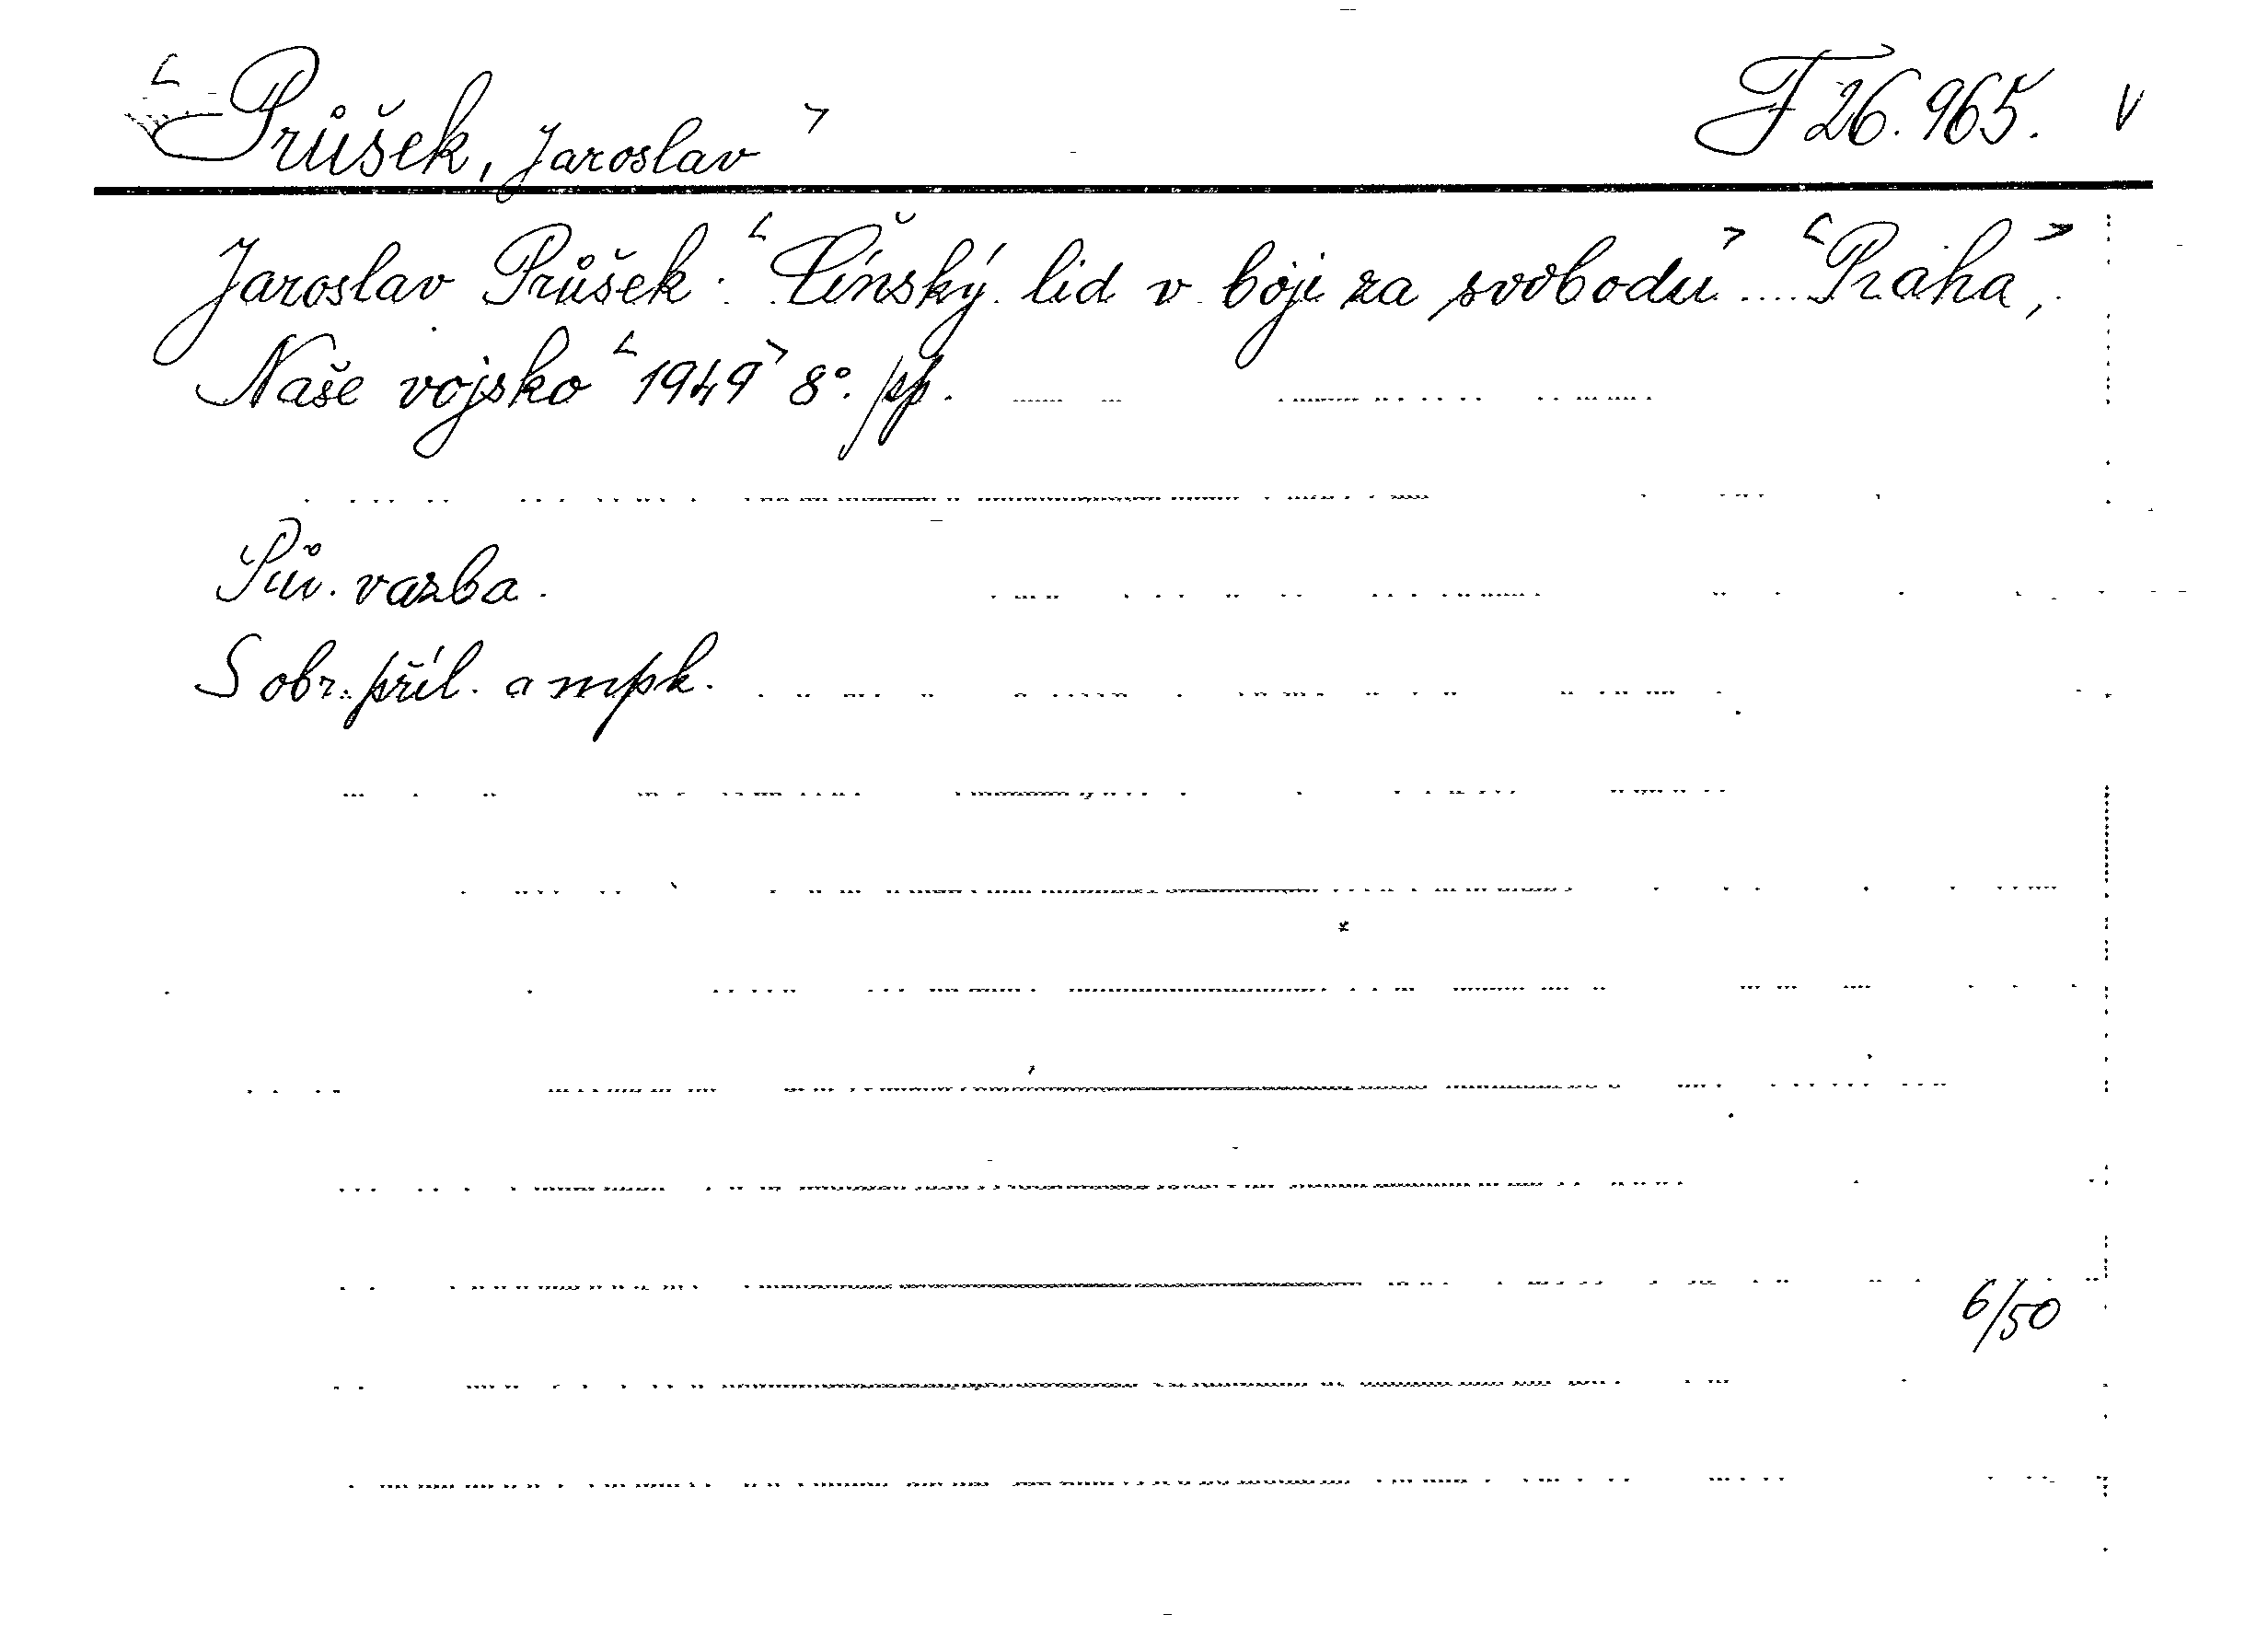 <Průšek, Jaroslav> F 26.965. V
Jaroslav Průšek: <Čínský lid v boji za svobodu> .... <Praha>,
Naše vojsko <1949> 8°. pp.
Pův. vazba.
S obr. příl. a mpk.
6/50